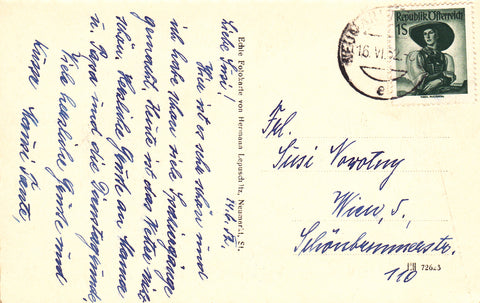 Liebe Susi!
Hier ist es sehr schön und
ich habe schon viele Spaziergänge
gemacht. Heute ist das Wetter nicht
schön. Herzliche Grüße an Mama
u. Papa und die
Viele herzliche Grüße und
Küsse Tante,
14.6.52.
Echte Fotokarte von Hermann Lepuschitz, Neumarkt, St.
NEUMARKT
16.VI.52
e
Republik Österreich
1S
Frl.
Susi Novotny
Wien, 5,
Schönbrunnerstr.
110
72623